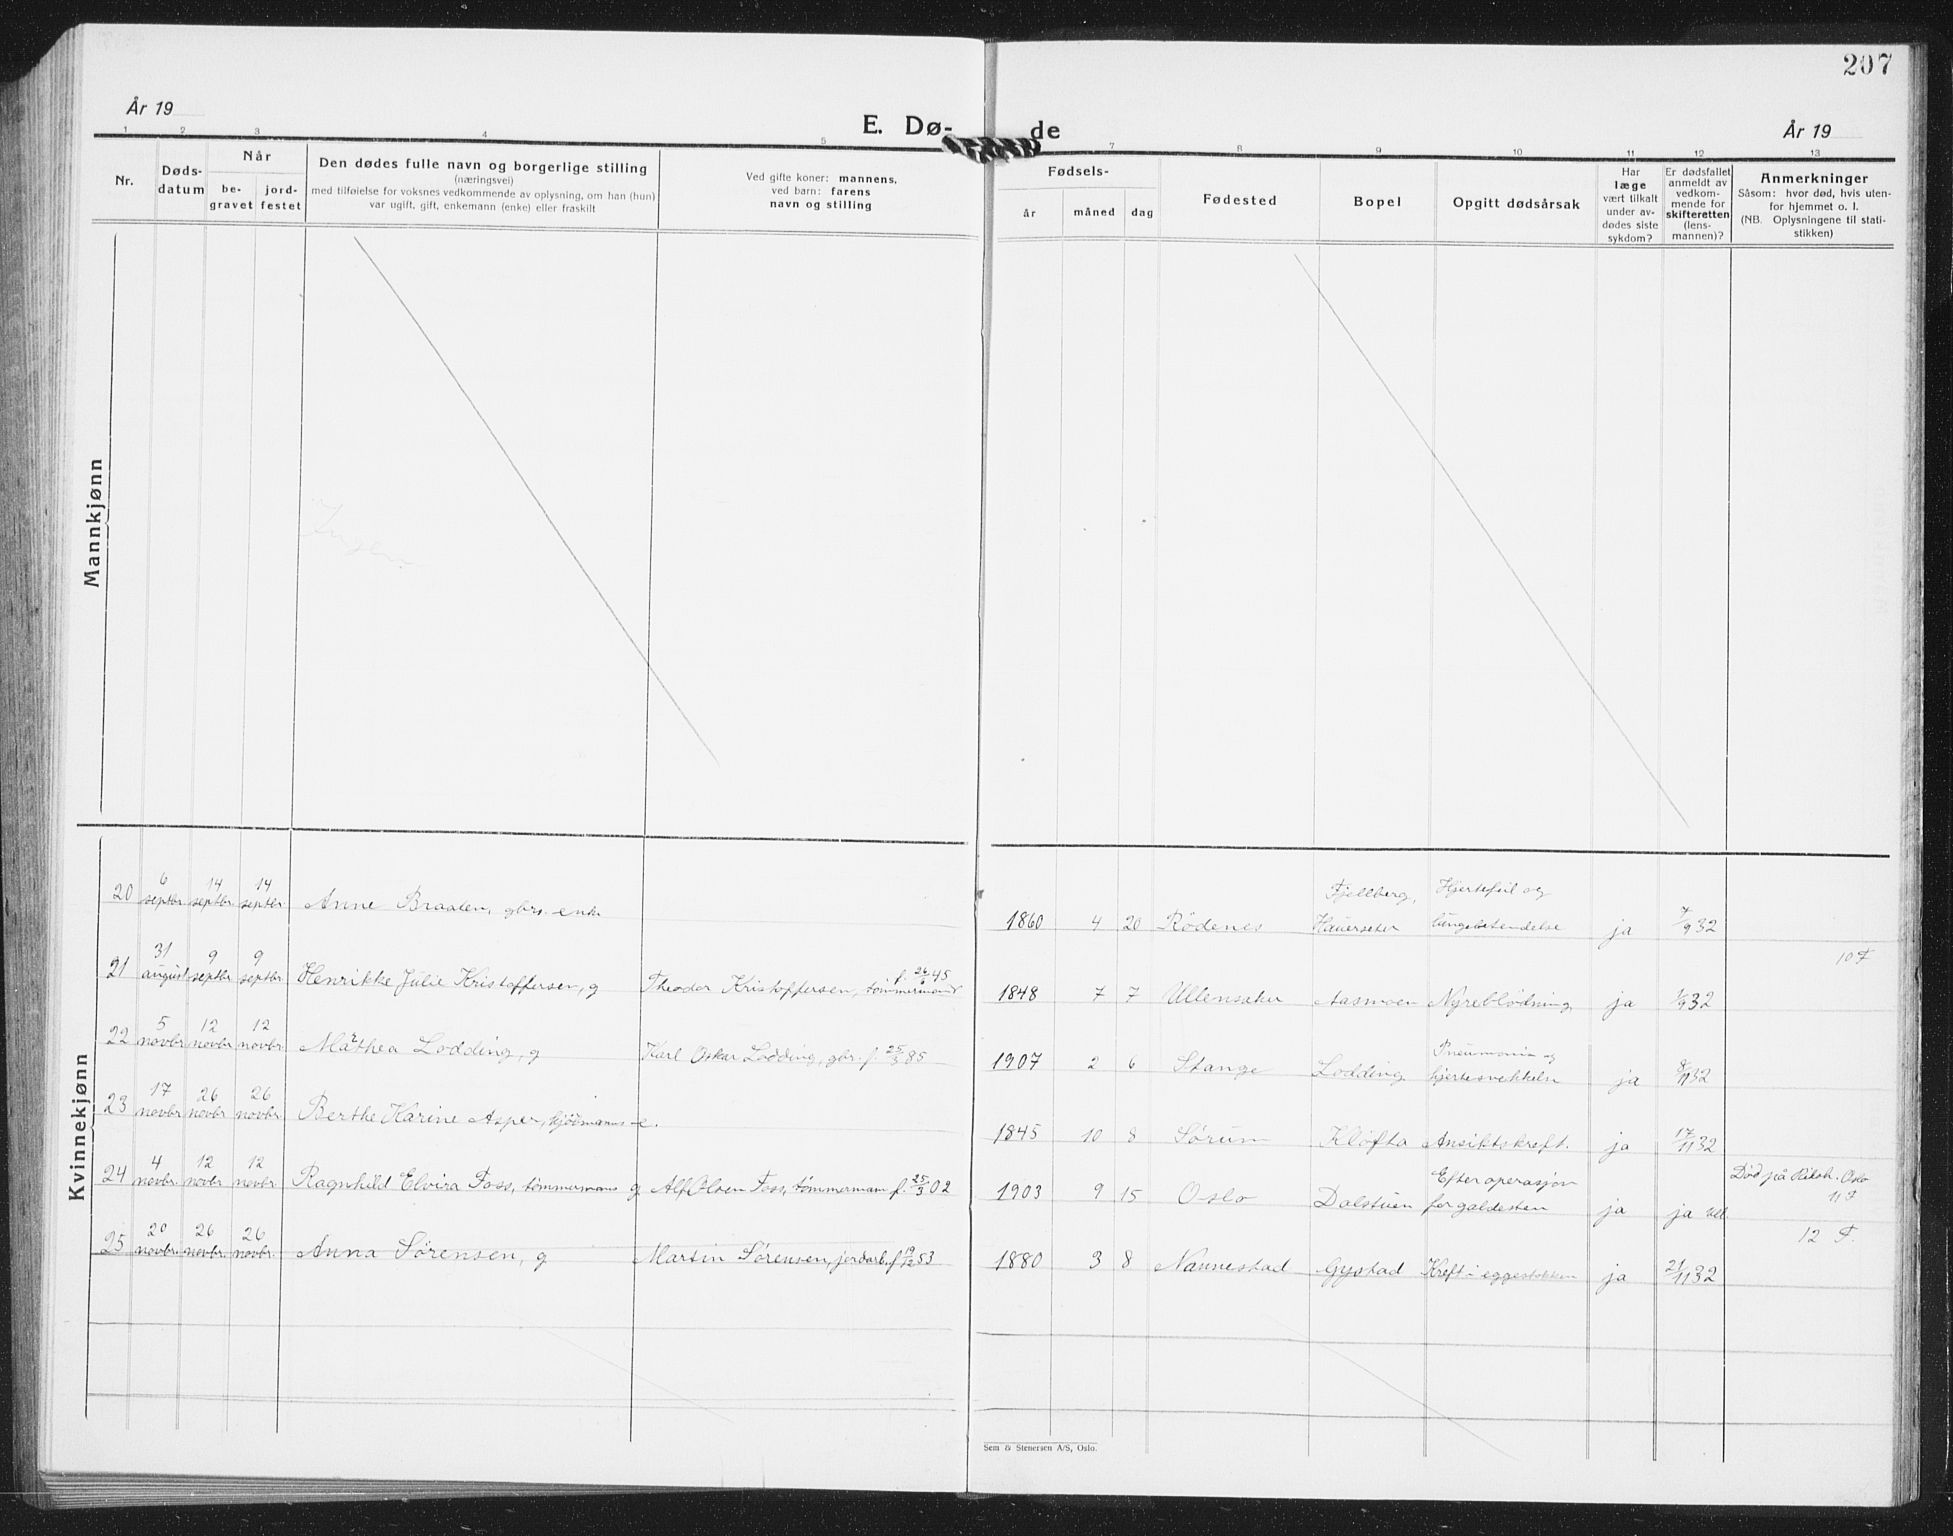 207
År 19
E. Dø-
de
År 19
1 2 3 4 5 7 8 9 10 11 12 13
Nr.
Døds-
datum
Når
be-
gravet
jord-
festet
Den dødes fulle navn og borgerlige stilling
(næringsvei)
med tilføielse for voksnes vedkommende av oplysning, om han (hun)
var ugift, gift, enkemann (enke) eller fraskilt
Ved gifte koner: mannens,
ved barn: farens
navn og stilling
Fødsels-
år
måned
dag
Fødested
Bopel
Opgitt dødsårsak
Har
læge
vært tilkalt
under av-
dødes siste
sykdom?
Er dødsfallet
anmeldt av
vedkom-
mende for
skifteretten
(lens-
mannen)?
Anmerkninger
Såsom: hvor død, hvis uten-
for hjemmet o. l.
(NB. Oplysningene til stati-
stikken)
Mannkjønn
Ingen
Kvinnekjønn
20 6 septbr. 14 septbr. 14 septbr. Anne Braaten, gbrs. enke 1860 4 20 Rödenes Fjellberg, Hauerseter Hjertefeil og lungebetendelse ja 7/9 32
10 F
21 31 august 9 septbr. 9 septbr. Henrikke Julie Kristoffersen, g Theodor Kristoffersen, tömmermand 1848 7 7 Ullensaker Aasmoen Nyreblödning ja 1/9 32
22 5 novbr. 12 novbr. 12 novbr. Marthea Lodding, g Karl Oskar Lodding, gbr. f. 25/3 85 1907 2 6 Stange Lodding Pneumonia og hjertesvekkeln ja 8/11 32
23 17 novbr. 26 novbr. 26 novbr. Berthe Karine Asper, kjöbmanns e. 1845 10 8 Sörum Klöfta Ansiktskreft. ja 17/11 32
24 4 novbr. 12 novbr. 12 novbr. Ragnhild Elvira Foss, tömmermans g Alf Olsen Foss, tömmermann f. 25/3 02 1903 9 15 Oslo Dalstuen Efter operasjon for galdesten ja ja Død på Riksh. Oslo
11 F
12 F.
25 20 novbr. 26 novbr. 26 novbr. Anna Sørensen, g Martin Sørensen, jordarb. f 19/12 53 1880 3 8 Nannestad Gystad Kreft i eggestokken ja 21/11 32
Sem & Stenersen A/S, Oslo.